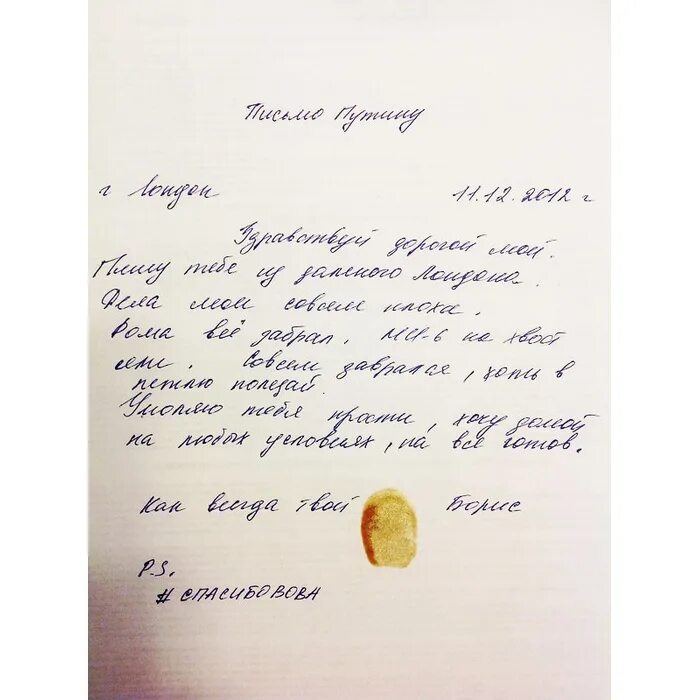 Письмо Путину
г Лондон 11.12.2012 г
Здравствуй дорогой мой.
Пишу тебе из далёкого Лондона.
Дела мои совсем плохи.
Рома всё забрал, МИ-6 на хвост
сели. Совсем заврался, хоть в
петлю полезай.
Умоляю тебя прости, хочу домой
на любых условиях, на всё готов.
Как всегда твой Борис
P.S.
#СПАСИБОВОВА